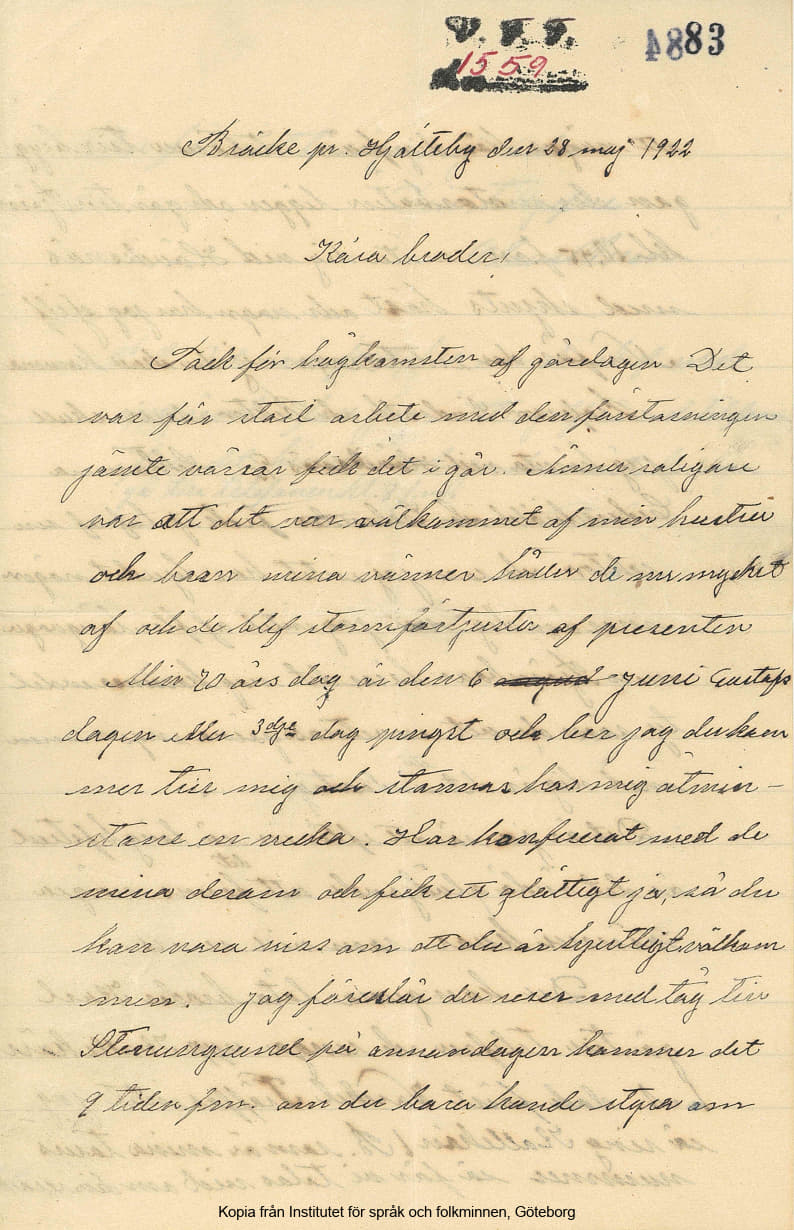 V. F. F.
1559
4883
Bräcke pr. Hjälteby den 28 maj 1922
Kära broder!
Tack för hågkomsten af gårdagen Det
var för stort arbete med den förtäringen
jämte varor fick det i går. Ännu roligare
var att det var välkommet af min hustru
och barn mina vänner håller de nu mycket
af och de blef stormförtjuster af presenten
Min 70 års dag är den 6 juni Gustafs
dagen eller 3dje dag pingst och ber jag du kom
mer till mig och stannar hos mig åtmin-
stone en vecka. Har konfererat med de
mina derom och fick ett gladtigt ja, så du
kan vara viss om att du är hjertligt välkom
men. Jag föreslår du reser med tåg till
Stenungsund på annandagen kommer det
9 tiden fm. om du bara kunde styra om
Kopia från Institutet för språk och folkminnen, Göteborg